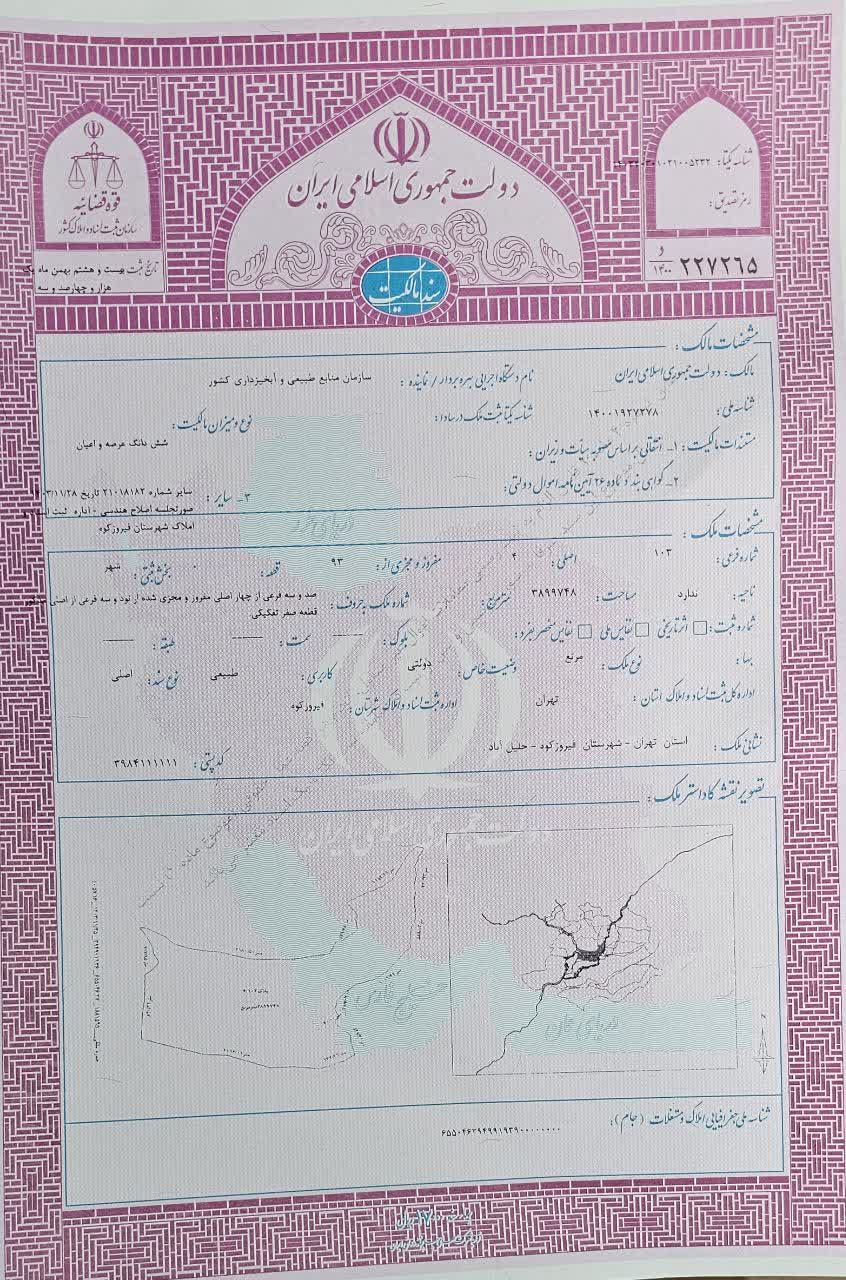 دولت جمهوری اسلامی ایران
قوه قضائیه
سازمان ثبت اسناد و املاک کشور
شناسه یکتا:
رمز تصدیق:
و
۱۴۰۰
۲۲۷۲۶۵
تاریخ ثبت بیست و هشتم بهمن ماه یک
هزار و چهارصد و سه
سند مالکیت
مشخصات مالک:
مالک: دولت جمهوری اسلامی ایران نام دستگاه اجرایی بهره بردار / نماینده: سازمان منابع طبیعی و آبخیزداری کشور
شناسه ملی: ۱۴۰۰۱۹۲۷۲۷۸ شناسه یکتا ثبت ملک در سادا: نوع و میزان مالکیت:
شش دانگ عرصه و اعیان
مستندات مالکیت: ۱- انتقالی بر اساس مصوبه هیأت وزیران:
۲- گواهی بند د ماده ۲۶ آیین نامه اموال دولتی:
۳- سایر: سایر شماره ۲۱۰۱۸۱۸۲ تاریخ ۱۴۰۳/۱۱/۲۸
صورتجلسه اصلاح هندسی - اداره ثبت اسناد و
املاک شهرستان فیروزکوه
مشخصات ملک:
شماره فرعی: ۱۰۳ اصلی: ۴ مفروز و مجزی از: ۹۳ قطعه: ۰ بخش ثبتی: شهر
ناحیه: ندارد مساحت: ۳۸۹۹۷۴۸ مترمربع: شماره ملک به حروف: صد و سه فرعی از چهار اصلی مفروز و مجزی شده از نود و سه فرعی از اصلی مذکور
قطعه صفر تفکیکی
شماره ثبت: اثر تاریخی نفایس ملی نفایس منحصر بفرد: بلوک: سمت: طبقه:
بها: نوع ملک: مرتع وضعیت خاص: دولتی کاربری: طبیعی نوع سند: اصلی
اداره کل ثبت اسناد و املاک استان: تهران اداره ثبت اسناد و املاک شهرستان: فیروزکوه
نشانی ملک: استان تهران - شهرستان فیروزکوه - جلیل آباد کد پستی: ۳۹۸۴۱۱۱۱۱۱
تصویر نقشه کاداستر ملک:
دریای خزر
دولت جمهوری اسلامی ایران
خلیج فارس
دریای عمان
شناسه ملی جغرافیایی املاک و مستغلات (جام): ۶۵۵۰۴۶۳۹۴۹۹۱۹۳۹۰۰۰۰۰۰۰۰